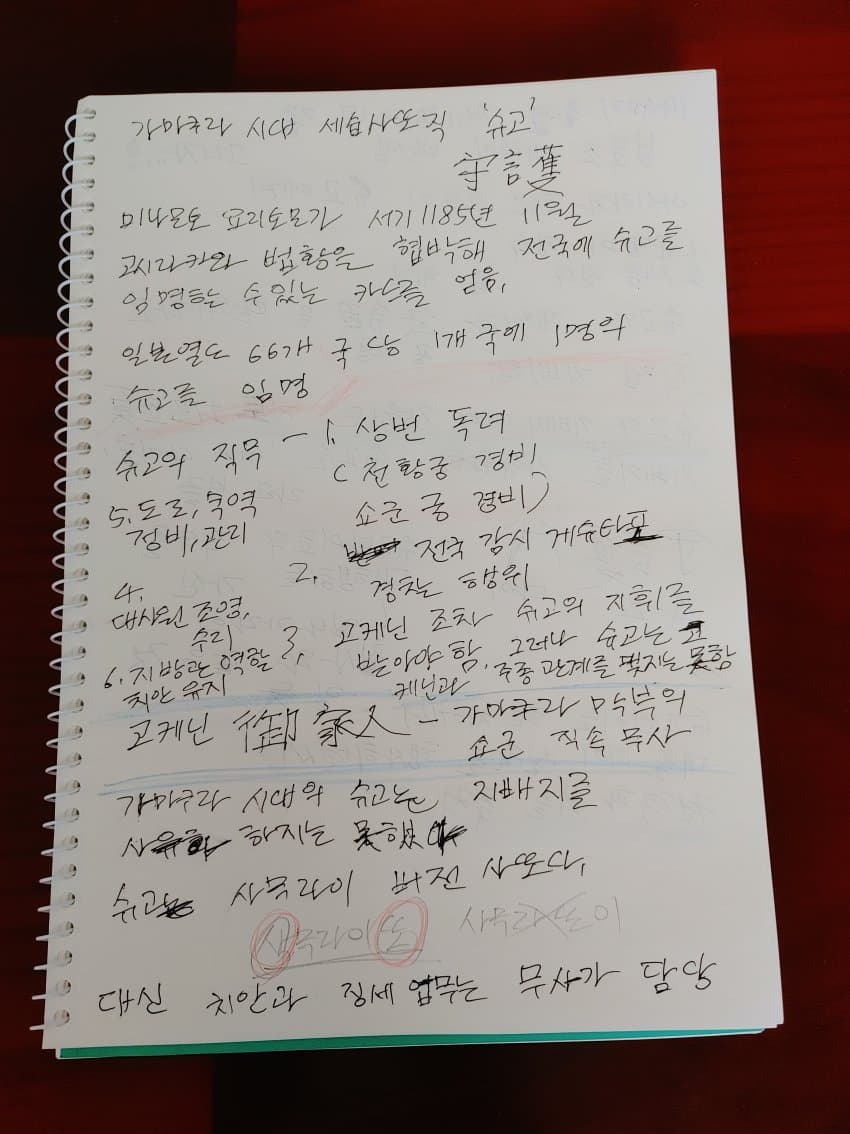 가마쿠라 시대 세습사또직 '슈고'
守護
미나모토 요리토모가 서기 1185년 11월
고시라카와 법황을 협박해 전국에 슈고를
임명하는 수 있는 카드를 얻음,
일본열도 66개 국 는 1개 국에 1명의
슈고를 임명
슈고의 직무 – 1, 상번 독려
( 천황궁 경비,
쇼군 궁 경비)
2. 전국 감시 게슈타포
경찰 행위
3, 고케닌 조차 슈고의 지휘를
받아야 함, 그러나 슈고는 고
케닌과 주종 관계를 맺지는 못함
4,
대사원 조영,
수리
5, 도로, 숙역
정비, 관리
6, 지방관 역할
치안 유지
고케닌 御家人 – 가마쿠라 막부의
쇼군 직속 무사
가마쿠라 시대의 슈고는 지배지를
사유화 하지는 못했다
슈고는 사무라이 버전 사또다,
새무라이 또 사무라 또이
대신 치안과 징세 업무는 무사가 담당